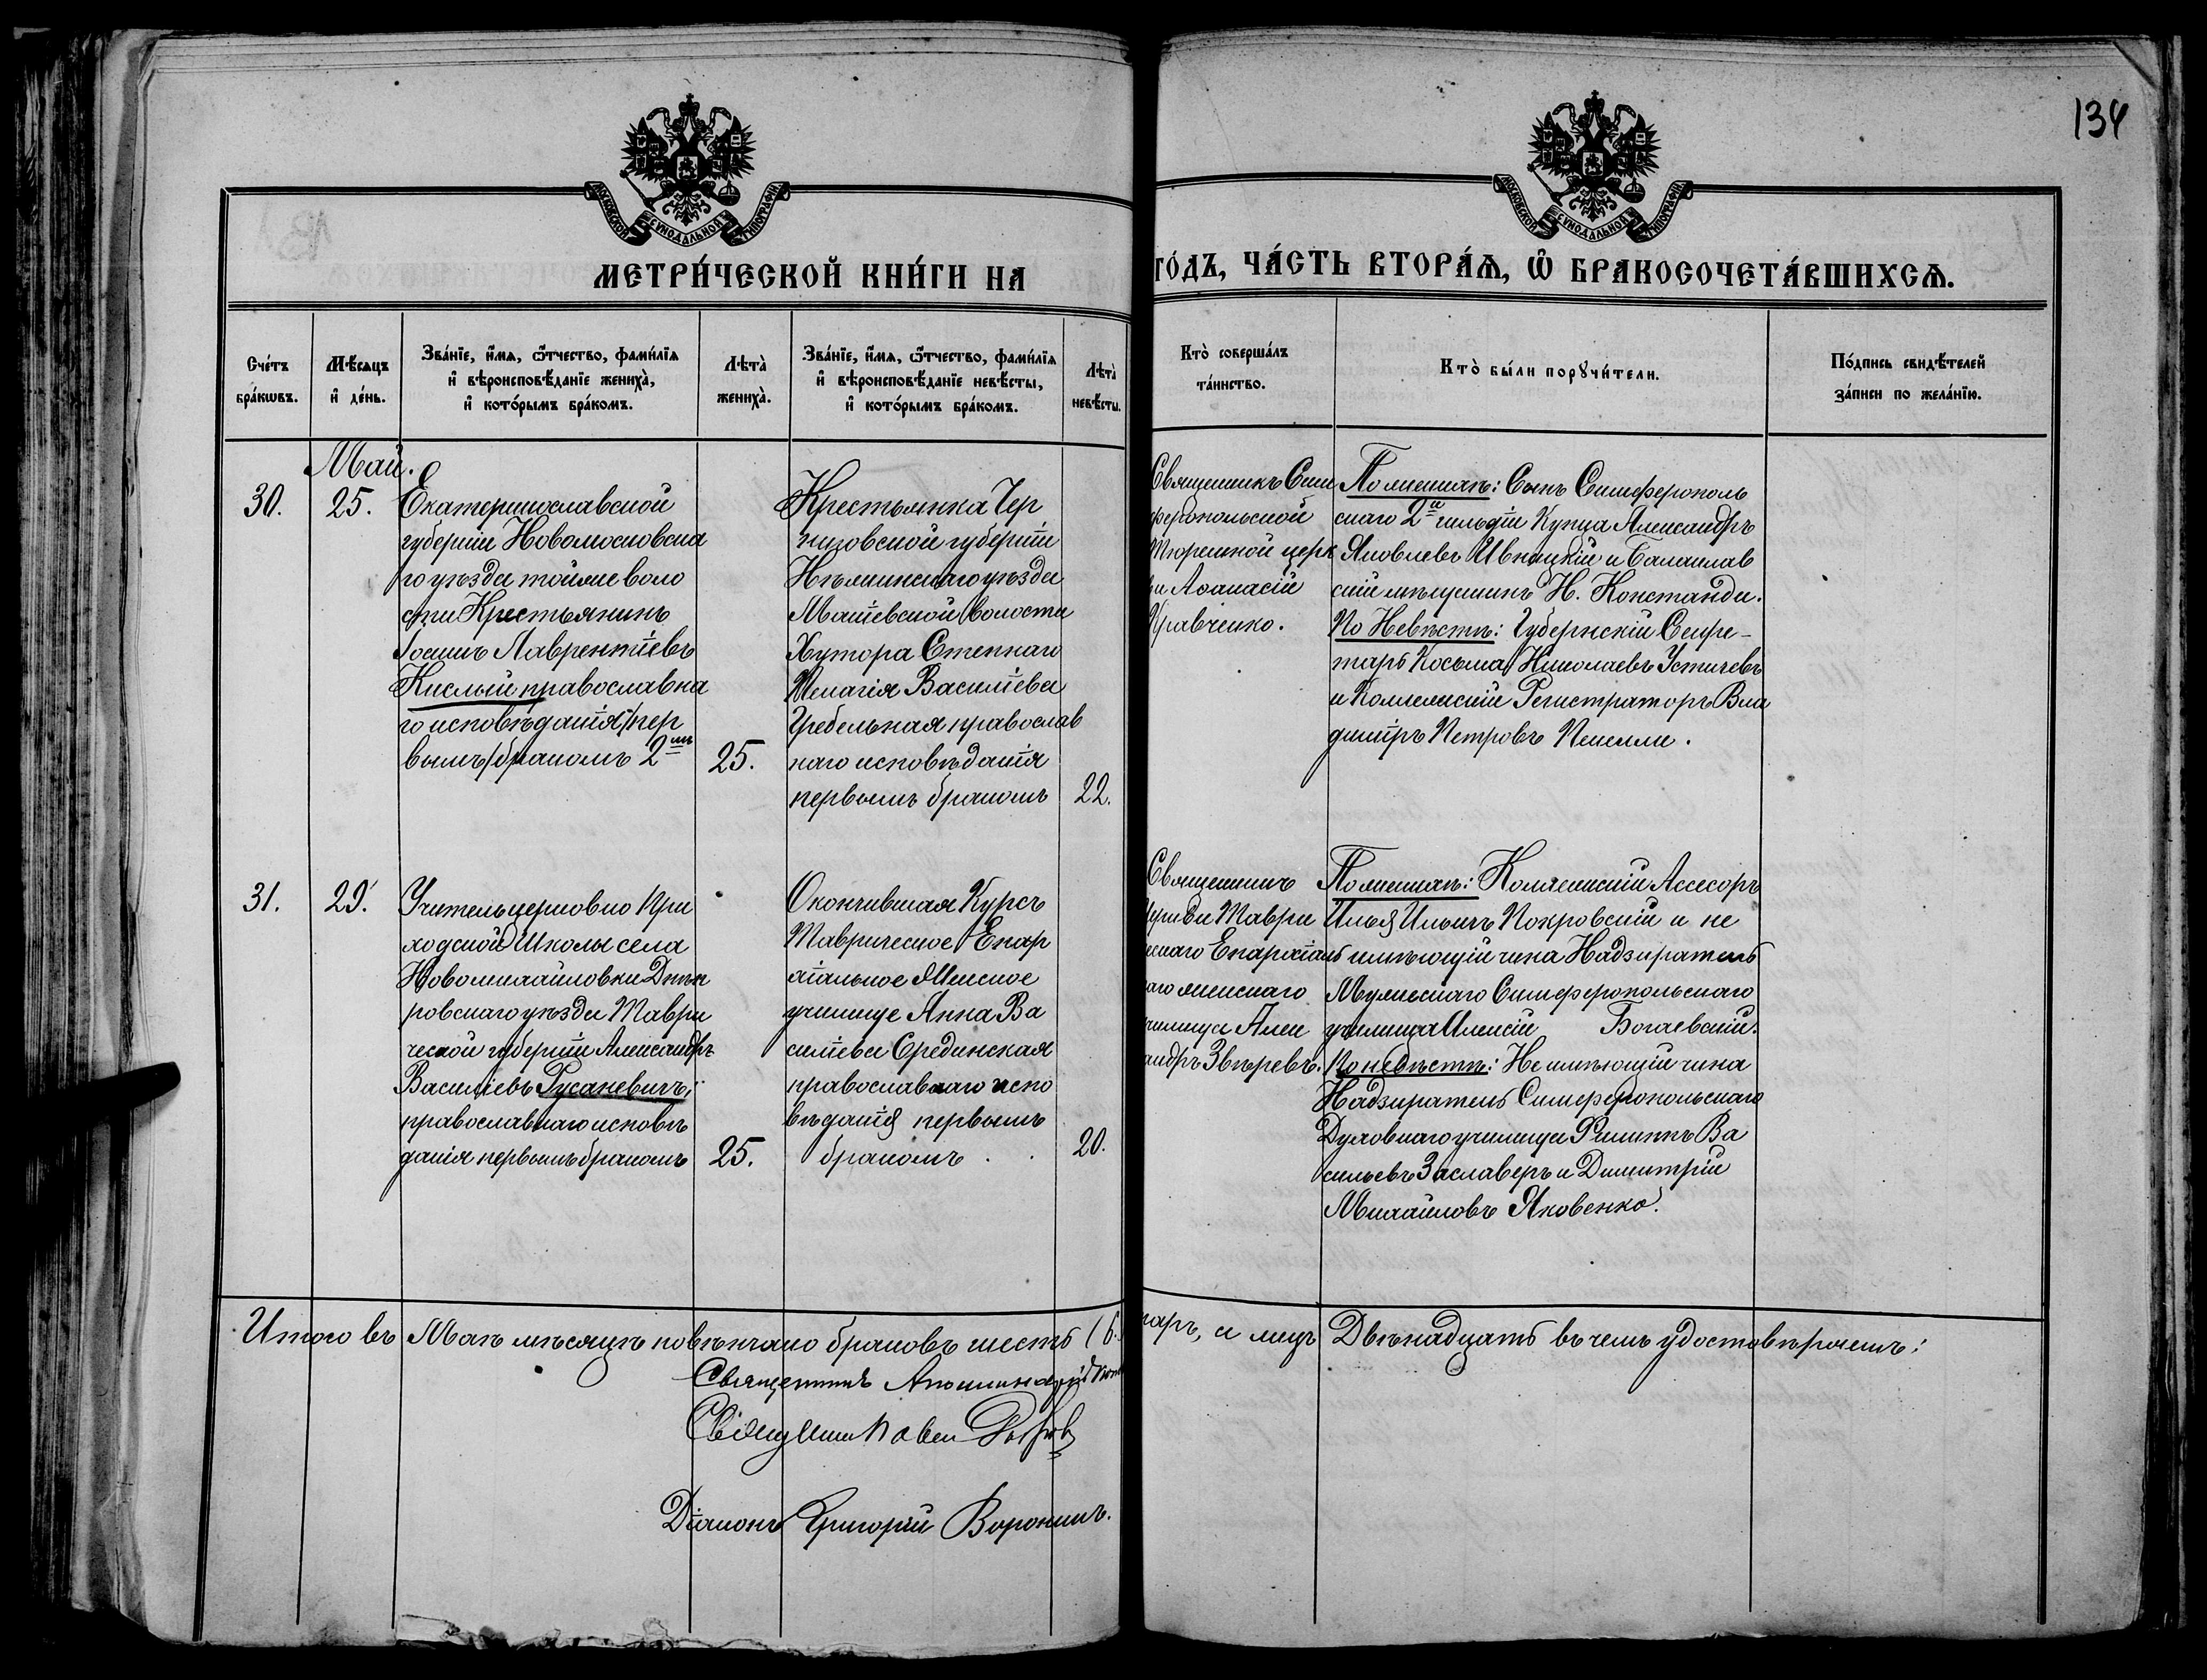 134
МОСКОВСКОЙ СѴНОДАЛЬНОЙ ТИПОГРАФІИ
МОСКОВСКОЙ СѴНОДАЛЬНОЙ ТИПОГРАФІИ
МЕТРИ́ЧЕСКОЙ КНИ́ГИ НА
ГО́ДЪ, ЧА́СТЬ ВТОРА́Ѧ, Ѽ БРАКОСОЧЕТА́ВШИХСѦ.
Сче́тъ
бра́кѡвъ.
Мѣ́сѧцъ
и҆ де́нь.
Зва́нїе, и҆́мѧ, ѻ҆́тчество, фами́лїѧ
и҆ вѣроисповѣ́данїе жениха̀,
и҆ кото́рымъ бра́комъ.
Лѣта̀
жениха̀.
Зва́нїе, и҆́мѧ, ѻ҆́тчество, фами́лїѧ
и҆ вѣроисповѣ́данїе невѣ́сты,
и҆ кото́рымъ бра́комъ.
Лѣта̀
невѣ́сты.
Кто̀ соверша́лъ
та́инство.
Кто̀ бы́ли порꙋчи́тели.
По́дпись свидѣ́телей
за́писи по жела́нїю.
Май.
30.
25.
Екатеринославской
губерніи Новомосковска
го уѣзда тойже воло
сти Крестьянинъ
Іоаннъ Лаврентіевъ
Кислый православна
го исповѣданія /пер
вымъ/ бракомъ 2мъ
25.
Крестьянка Чер
ниговской губерніи
Нѣжинскаго уѣзда
Мошевской волости
Хутора Степнаго
Пелагія Василіева
Гребельная православ
наго исповѣданія
первымъ бракомъ
22.
Священникъ Сим
феропольской
Тюремной церк
ви Аѳанасій
Кравченко.
По женихѣ: Сынъ Симферополь
скаго 2й гильдіи Купца Александръ
Яковлевъ Ивницкій и Балаклав
скій мѣщанинъ Н. Констанди.
По Невѣстѣ: Губернскій Секре-
тарь Косьма Николаевъ Устичевъ
и Коллежскій Регистраторъ Вла
диміръ Петровъ
31.
29.
Учитель церковно при
ходской Школы села
Новомихайловки Днѣп
ровскаго уѣзда Таври
ческой губерніи Александръ
Василіевъ Русаневичъ;
православнаго исповѣ
данія первымъ бракомъ
25.
Окончившая Курсъ
Таврическое Епар
хіальное Женское
училище Анна Ва
силіева Срединская
православнаго испо
вѣданія первымъ
бракомъ
20.
Священникъ
церкви Таври
ческаго Епархіаль
наго женскаго
училища Алек
андръ Звѣревъ.
По женихѣ: Коллежскій Ассесоръ
Илья Ильичъ Покровскій и не
имѣющій чина Надзиратель
Мужескаго Симферопольскаго
училища Алексій Богаевскій.
По невѣстѣ: Не имѣющій чина
Надзиратель Симферопольскаго
Духовнаго училища Филиппъ Ва
сильевъ Заславеръ и Димитрій
Михайловъ Яковенко.
Итого въ Маѣ мѣсяцѣ повѣнчано браковъ шесть (6.) паръ, а лицъ Двѣнадцать въ чемъ удостовѣряемъ:
Священникъ Аполлинарій
Священникъ Павелъ
Діаконъ Григорій Воронинъ.